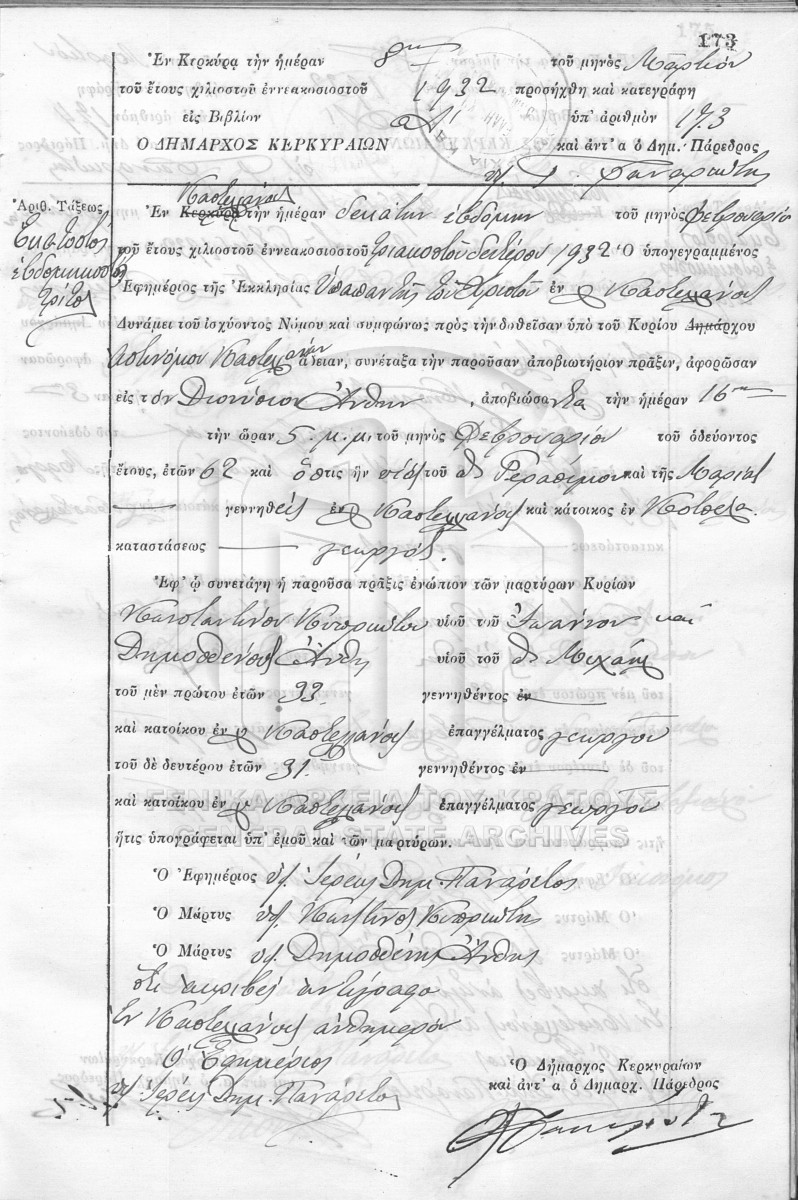 173
Ἐν Κερκύρᾳ τὴν ἡμέραν 8ην τοῦ μηνὸς Μαρτίου
τοῦ ἔτους χιλιοστοῦ ἐννεακοσιοστοῦ 1932 προσήχθη καὶ κατεγράφη
εἰς Βιβλίον Α′ ὑπ' ἀριθμὸν 173
Ο ΔΗΜΑΡΧΟΣ ΚΕΡΚΥΡΑΙΩΝ καὶ ἀντ' α ὁ Δημ. Πάρεδρος
Ἀριθ. Τάξεως
Ἑκατοστὸς
ἑβδομηκοστὸς
τρίτος
Καστελλάνοις
Ἐν Κερκύρᾳ τὴν ἡμέραν δεκάτην ἑβδόμην τοῦ μηνὸς Φεβρουαρίου
τοῦ ἔτους χιλιοστοῦ ἐννεακοσιοστοῦ τριακοστοῦ δευτέρου 1932 Ὁ ὑπογεγραμμένος
Ἐφημέριος τῆς Ἐκκλησίας Ὑπαπαντῆς τοῦ Χριστοῦ ἐν Καστελλάνοις
Δυνάμει τοῦ ἰσχύοντος Νόμου καὶ συμφώνως πρὸς τὴν δοθεῖσαν ὑπὸ τοῦ Κυρίου Δημάρχου
Ἀστυνόμου Καστελλάνων ἄδειαν, συνέταξα τὴν παροῦσαν ἀποβιωτήριον πρᾶξιν, ἀφορῶσαν
εἰς τὸν Διονύσιον Ἄνθην, ἀποβιώσαντα τὴν ἡμέραν 16ην
τὴν ὥραν 5. μ. μ. τοῦ μηνὸς Φεβρουαρίου τοῦ ὁδεύοντος
ἔτους, ἐτῶν 62 καὶ ὅστις ἦν υἱὸς τοῦ Γερασίμου καὶ τῆς Μαρίας
γεννηθεὶς ἐν Καστελλάνοις καὶ κάτοικος ἐν
καταστάσεως γεωργός.
Ἐφ' ᾧ συνετάγη ἡ παροῦσα πρᾶξις ἐνώπιον τῶν μαρτύρων Κυρίων
Κωνσταντίνου Κυπριώτου υἱοῦ τοῦ Ἰωάννου καὶ
Δημοσθένους Ἄνθη υἱοῦ τοῦ Μιχαὴλ
τοῦ μὲν πρώτου ἐτῶν 33 γεννηθέντος ἐν
καὶ κατοίκου ἐν Καστελλάνοις ἐπαγγέλματος γεωργοῦ
τοῦ δὲ δευτέρου ἐτῶν 31 γεννηθέντος ἐν
καὶ κατοίκου ἐν Καστελλάνοις ἐπαγγέλματος γεωργοῦ
ΓΕΝΙΚΑ ΑΡΧΕΙΑ ΤΟΥ ΚΡΑΤΟΥΣ
CENTRAL STATE ARCHIVES
ἥτις ὑπογράφεται ὑπ' ἐμοῦ καὶ τῶν μαρτύρων.
Ὁ Ἐφημέριος υ. Ἱερεὺς Δημ. Πανάρετος
Ὁ Μάρτυς υ. Κων/τῖνος Κυπριώτης
Ὁ Μάρτυς υ. Δημοσθένης Ἄνθης
Ὅτι ἀκριβὲς ἀντίγραφο
Ἐν Καστελλάνοις αὐθημερόν
Ὁ Ἐφημέριος
υ. Ἱερεὺς Δημ. Πανάρετος
Ὁ Δήμαρχος Κερκυραίων
καὶ ἀντ' α ὁ Δημαρχ. Πάρεδρος